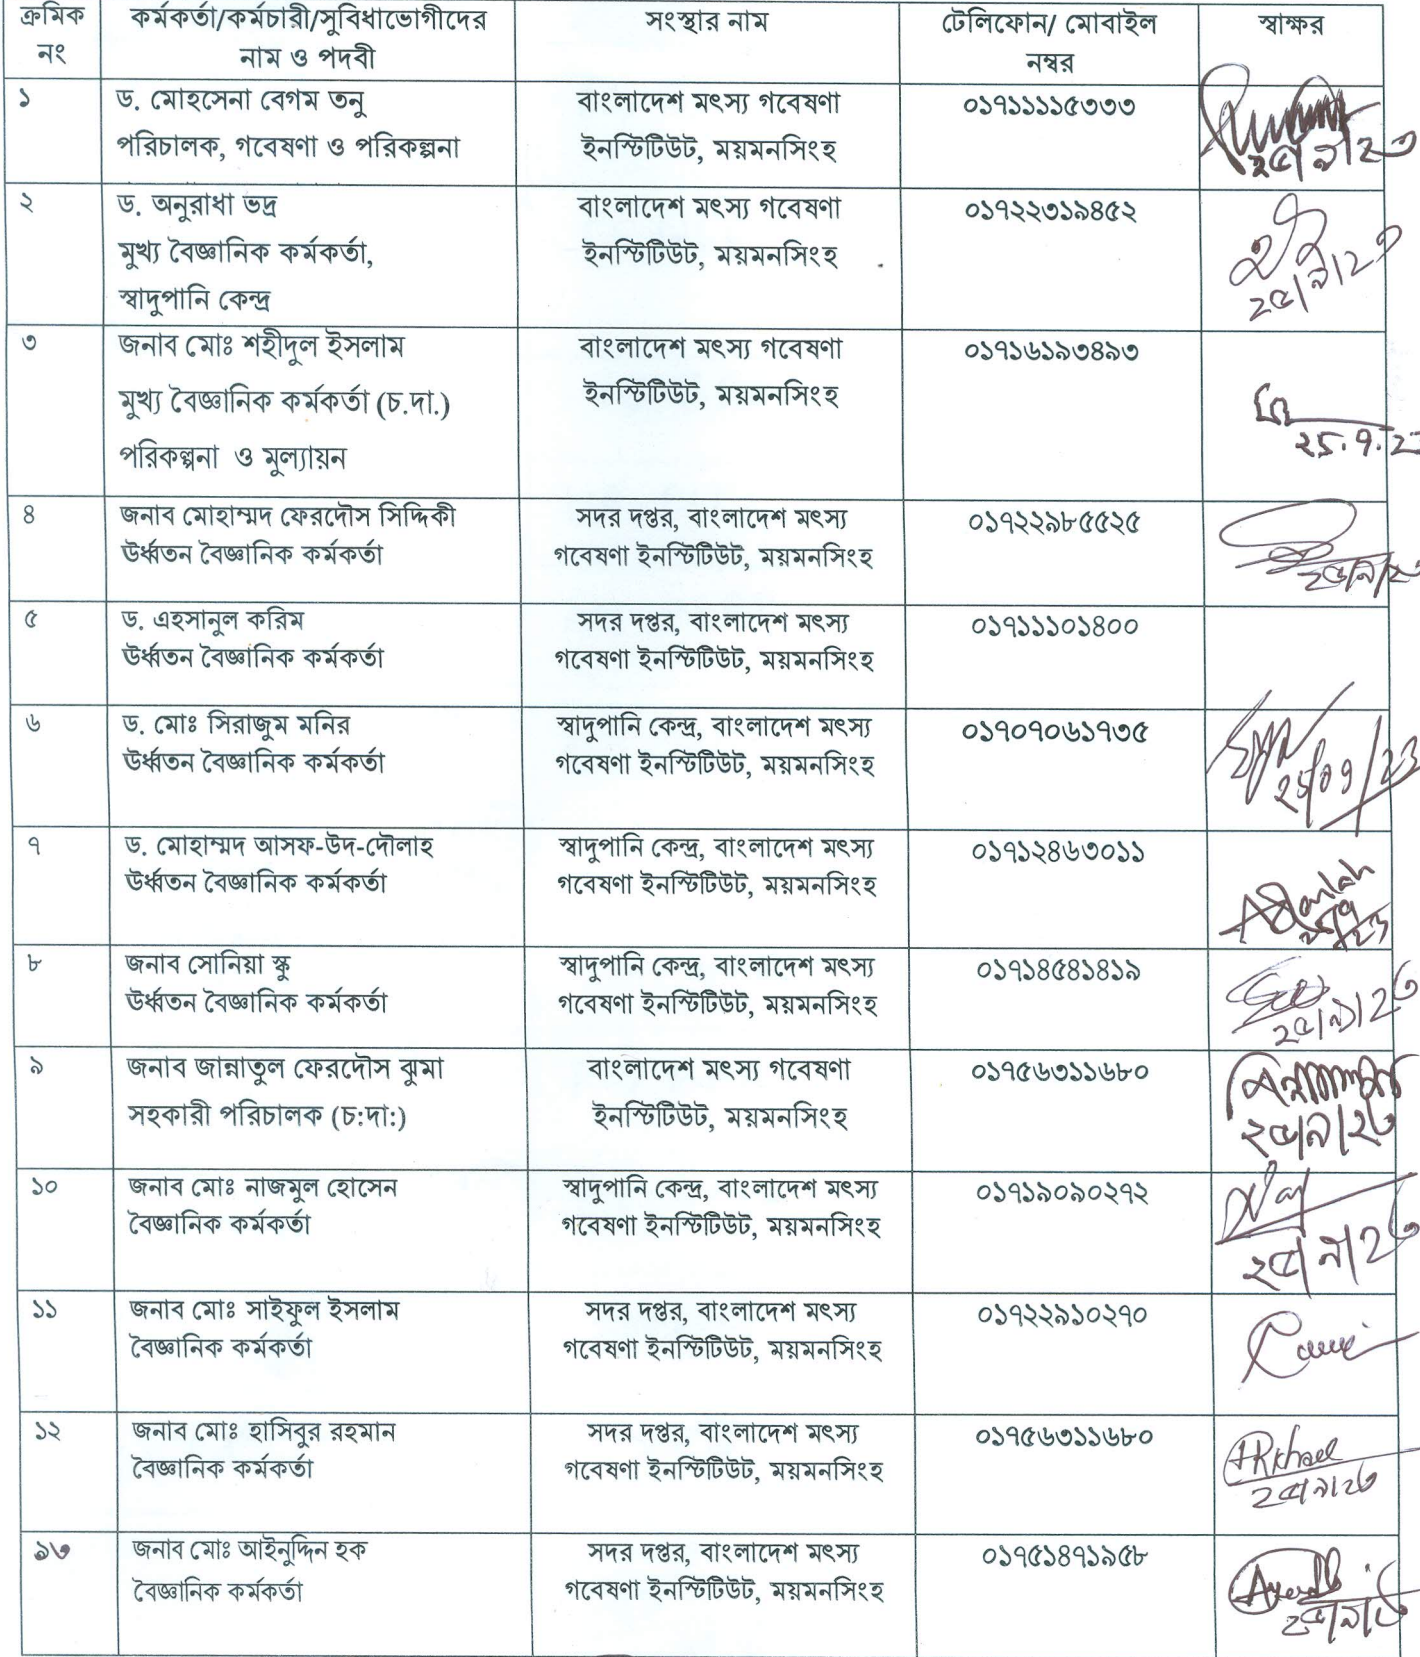 ক্রমিক
নং
কর্মকর্তা/কর্মচারী/সুবিধাভোগীদের
নাম ও পদবী
সংস্থার নাম
টেলিফোন/ মোবাইল
নম্বর
স্বাক্ষর
১
ড. মোহসেনা বেগম তনু
পরিচালক, গবেষণা ও পরিকল্পনা
বাংলাদেশ মৎস্য গবেষণা
ইনস্টিটিউট, ময়মনসিংহ
০১৭১১১১৫৩৩৩
২৫/৯/২৩
২
ড. অনুরাধা ভদ্র
মুখ্য বৈজ্ঞানিক কর্মকর্তা,
স্বাদুপানি কেন্দ্র
বাংলাদেশ মৎস্য গবেষণা
ইনস্টিটিউট, ময়মনসিংহ
০১৭২২৩১৯৪৫২
২৫/৯/২৩
৩
জনাব মোঃ শহীদুল ইসলাম
মুখ্য বৈজ্ঞানিক কর্মকর্তা (চ.দা.)
পরিকল্পনা ও মুল্যায়ন
বাংলাদেশ মৎস্য গবেষণা
ইনস্টিটিউট, ময়মনসিংহ
০১৭১৬১৯৩৪৯৩
৪
জনাব মোহাম্মদ ফেরদৌস সিদ্দিকী
উর্ধ্বতন বৈজ্ঞানিক কর্মকর্তা
সদর দপ্তর, বাংলাদেশ মৎস্য
গবেষণা ইনস্টিটিউট, ময়মনসিংহ
০১৭২২৯৮৫৫২৫
২৫/৯/২৩
৫
ড. এহসানুল করিম
উর্ধ্বতন বৈজ্ঞানিক কর্মকর্তা
সদর দপ্তর, বাংলাদেশ মৎস্য
গবেষণা ইনস্টিটিউট, ময়মনসিংহ
০১৭১১১০১৪০০
৬
ড. মোঃ সিরাজুম মনির
উর্ধ্বতন বৈজ্ঞানিক কর্মকর্তা
স্বাদুপানি কেন্দ্র, বাংলাদেশ মৎস্য
গবেষণা ইনস্টিটিউট, ময়মনসিংহ
০১৭০৭০৬১৭৩৫
৭
ড. মোহাম্মদ আসফ-উদ-দৌলাহ
উর্ধ্বতন বৈজ্ঞানিক কর্মকর্তা
স্বাদুপানি কেন্দ্র, বাংলাদেশ মৎস্য
গবেষণা ইনস্টিটিউট, ময়মনসিংহ
০১৭১২৪৬৩০১১
৮
জনাব সোনিয়া স্কু
উর্ধ্বতন বৈজ্ঞানিক কর্মকর্তা
স্বাদুপানি কেন্দ্র, বাংলাদেশ মৎস্য
গবেষণা ইনস্টিটিউট, ময়মনসিংহ
০১৭১৪৫৪১৪১৯
২৫/৯/২৩
৯
জনাব জান্নাতুল ফেরদৌস ঝুমা
সহকারী পরিচালক (চ:দা:)
বাংলাদেশ মৎস্য গবেষণা
ইনস্টিটিউট, ময়মনসিংহ
০১৭৫৬৩১১৬৮০
২৫/৯/২৩
১০
জনাব মোঃ নাজমুল হোসেন
বৈজ্ঞানিক কর্মকর্তা
স্বাদুপানি কেন্দ্র, বাংলাদেশ মৎস্য
গবেষণা ইনস্টিটিউট, ময়মনসিংহ
০১৭১৯০৯০২৭২
২৫/৯/২৩
১১
জনাব মোঃ সাইফুল ইসলাম
বৈজ্ঞানিক কর্মকর্তা
সদর দপ্তর, বাংলাদেশ মৎস্য
গবেষণা ইনস্টিটিউট, ময়মনসিংহ
০১৭২২৯১০২৭০
১২
জনাব মোঃ হাসিবুর রহমান
বৈজ্ঞানিক কর্মকর্তা
সদর দপ্তর, বাংলাদেশ মৎস্য
গবেষণা ইনস্টিটিউট, ময়মনসিংহ
০১৭৫৬৩১১৬৮০
২৫/৯/২৩
১৩
জনাব মোঃ আইনুদ্দিন হক
বৈজ্ঞানিক কর্মকর্তা
সদর দপ্তর, বাংলাদেশ মৎস্য
গবেষণা ইনস্টিটিউট, ময়মনসিংহ
০১৭৫১৪৭১৯৫৮